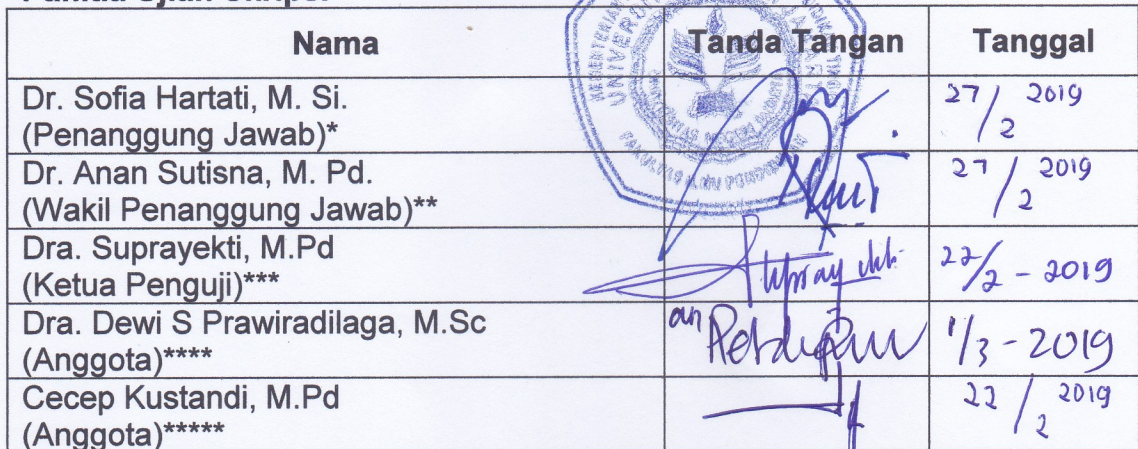 Nama Tanda Tangan Tanggal
Dr. Sofia Hartati, M. Si.
(Penanggung Jawab)*
27/2 2019
Dr. Anan Sutisna, M. Pd.
(Wakil Penanggung Jawab)**
27/2 2019
Dra. Suprayekti, M.Pd
(Ketua Penguji)***
22/2 - 2019
Dra. Dewi S Prawiradilaga, M.Sc
(Anggota)****
an
1/3 - 2019
Cecep Kustandi, M.Pd
(Anggota)*****
22/2 2019